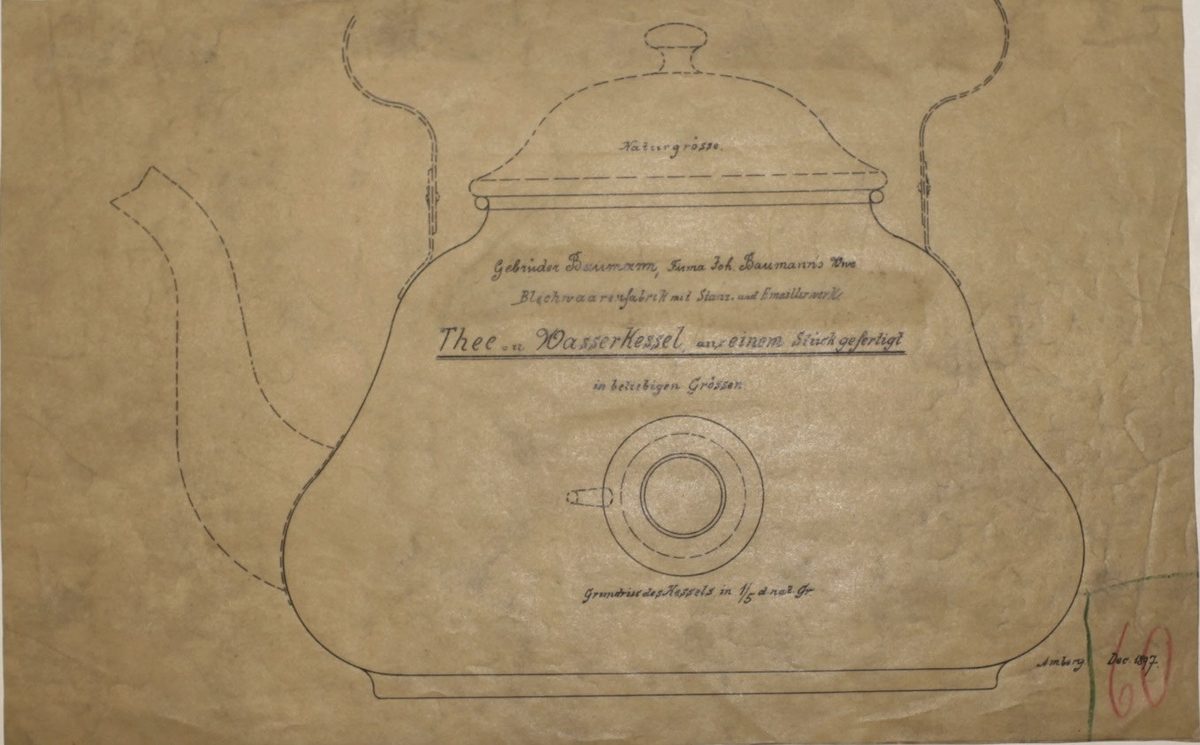 Naturgrösse.
Gebrüder Baumann, Firma Joh. Baumann's Wwe
Blechwaarenfabrik mit Stanz- und Emaillirwerk
Thee- u Wasserkessel, aus einem Stück gefertigt
in beliebigen Grössen
Grundriss des Kessels in 1/5 d nat. Gr.
Amberg Dec. 1897.
60